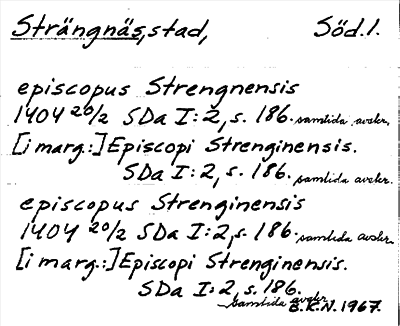 Strängnäs, stad, Söd.l.
episcopus Strengnensis
1404 20/2 SDa I:2, s. 186. samtida avskr.
[i marg:] Episcopi Strenginensis.
SDa I:2, s. 186. samtida avskr.
episcopus Strenginensis
1404 20/2 SDa I:2, s. 186. samtida avskr.
[i marg.:] Episcopi Strenginensis.
SDa I:2, s. 186.
samtida avskr.
B.K.N. 1967.